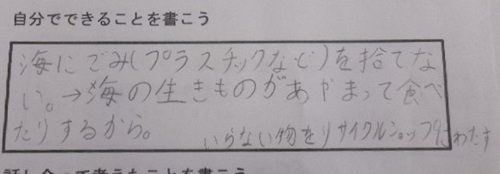 自分でできることを書こう
海にごみ(プラスチックなど)を捨てな
い。→海の生きものがあやまって食べ
たりするから。
いらない物をリサイクルショップにわたす
話し合って考えたことを書こう